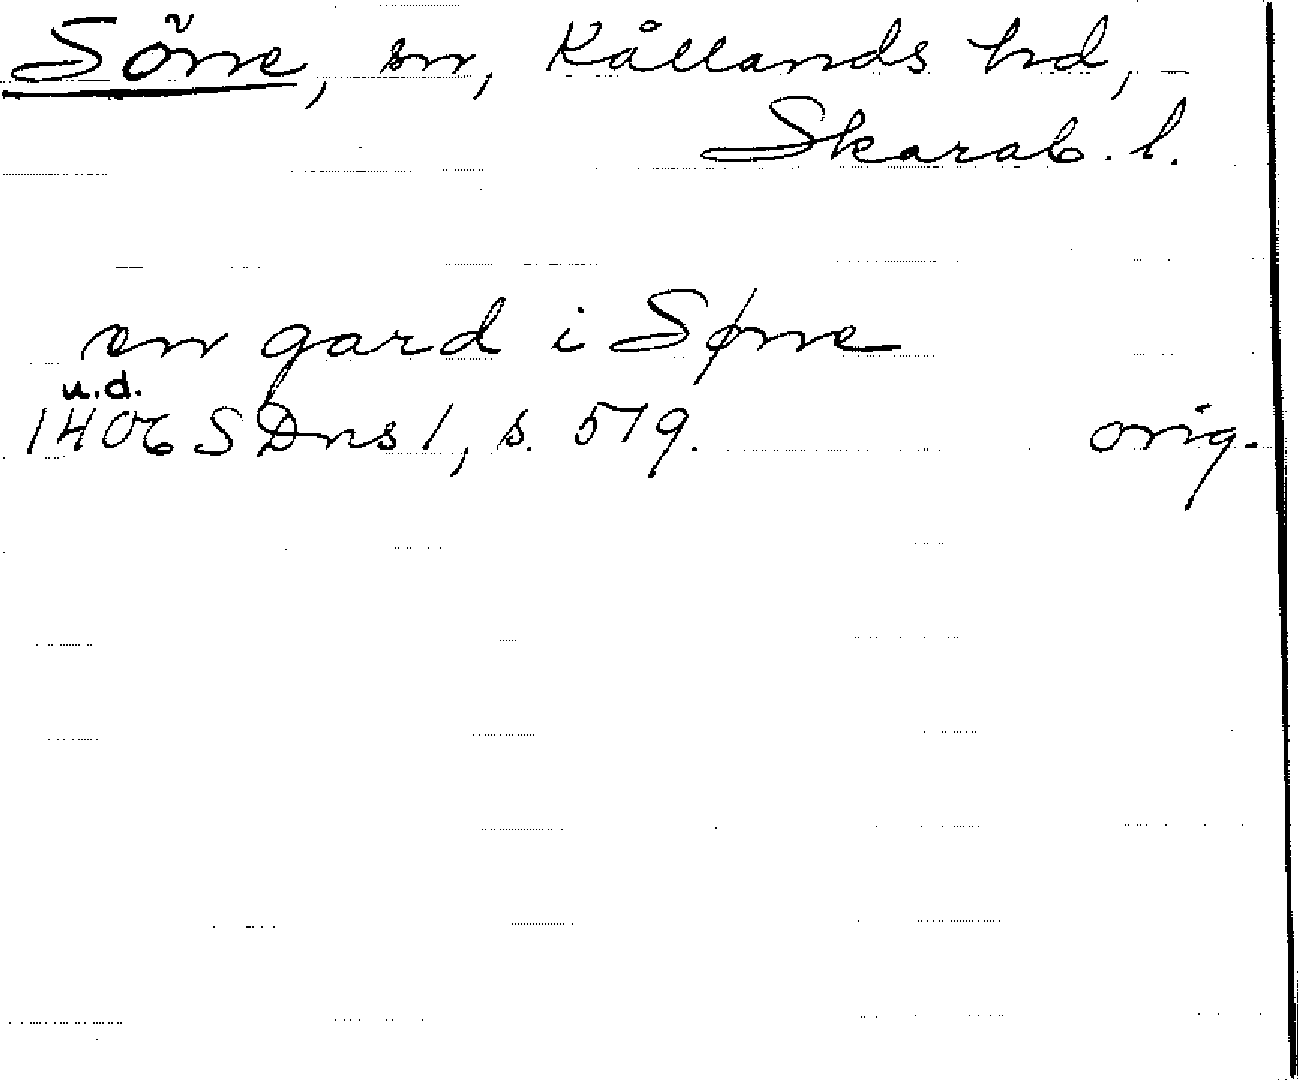 Söne, sn, Kållands hd,
Skarab. l.
en gard i Søne
u.d.
1406 SDns 1, s. 519. orig.